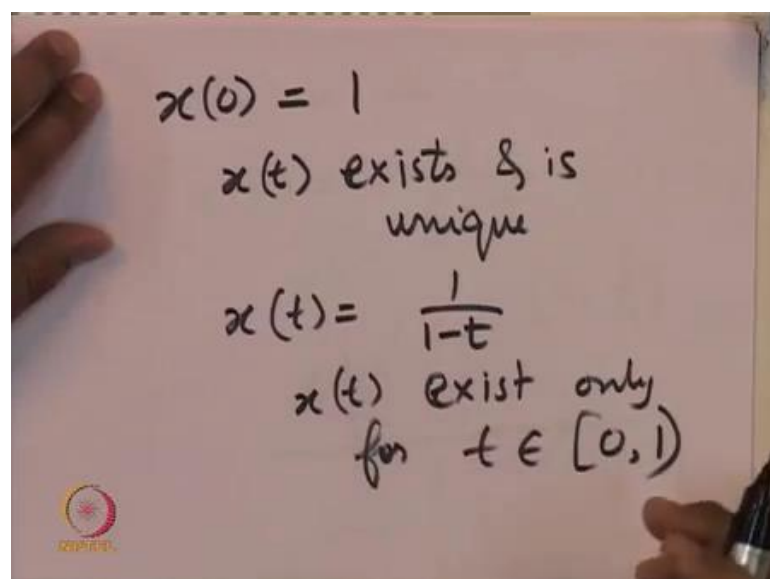 x(0) = 1
x(t) exists & is
unique
x(t) = 1/(1-t)
x(t) exist only
for t ∈ [0,1)
NPTEL